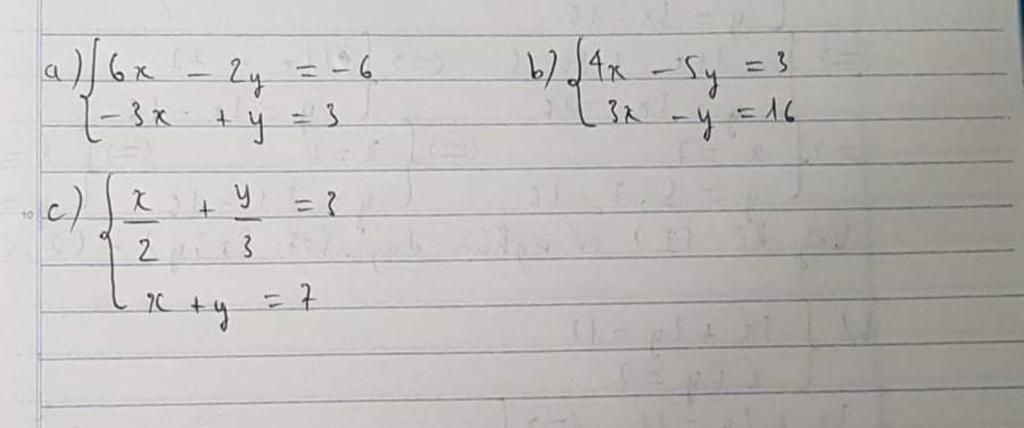 a) { 6x - 2y = -6
-3x + y = 3
b) { 4x - 5y = 3
3x - y = 16
10
c) { x/2 + y/3 = 3
x + y = 7